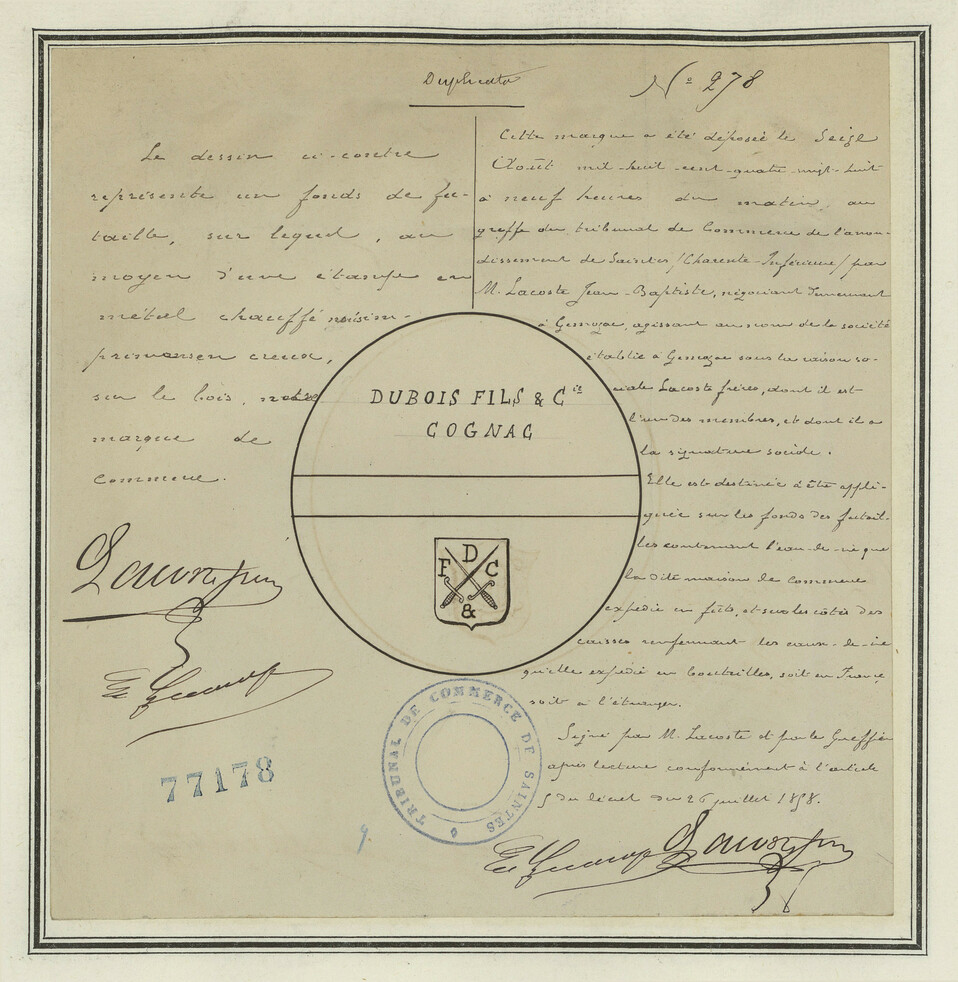 Duplicata
N° 278
Le dessin ci-contre
représente un fonds de fu-
taille, sur lequel, au
moyen d'une étampe en
métal chauffé nous im-
primons en creux,
sur le bois, notre
marque de
commerce.
Cette marque a été déposée le Seize
Août mil-huit-cent-quatre-vingt-huit
à neuf heures du matin, au
greffe du tribunal de Commerce de l'arron-
dissement de Saintes (Charente-Inférieure) par
M. Lacoste Jean-Baptiste, négociant demeurant
à Gemozac, agissant au nom de la société
établie à Gemozac sous la raison so-
ciale Lacoste frères, dont il est
l'un des membres, et dont il a
la signature sociale.
Elle est destinée à être appli-
quée sur les fonds des futail-
les contenant l'eau-de-vie que
la dite maison de commerce
expédie en fûts, et sur les côtés des
caisses renfermant les eaux-de-vie
qu'elle expédie en bouteilles, soit en France
soit à l'étranger.
Signé par M. Lacoste et par le Greffier
après lecture conformément à l'article
5 du décret du 26 juillet 1858.
DUBOIS FILS & Cie
COGNAC
F D C
&
TRIBUNAL DE COMMERCE DE SAINTES
77178